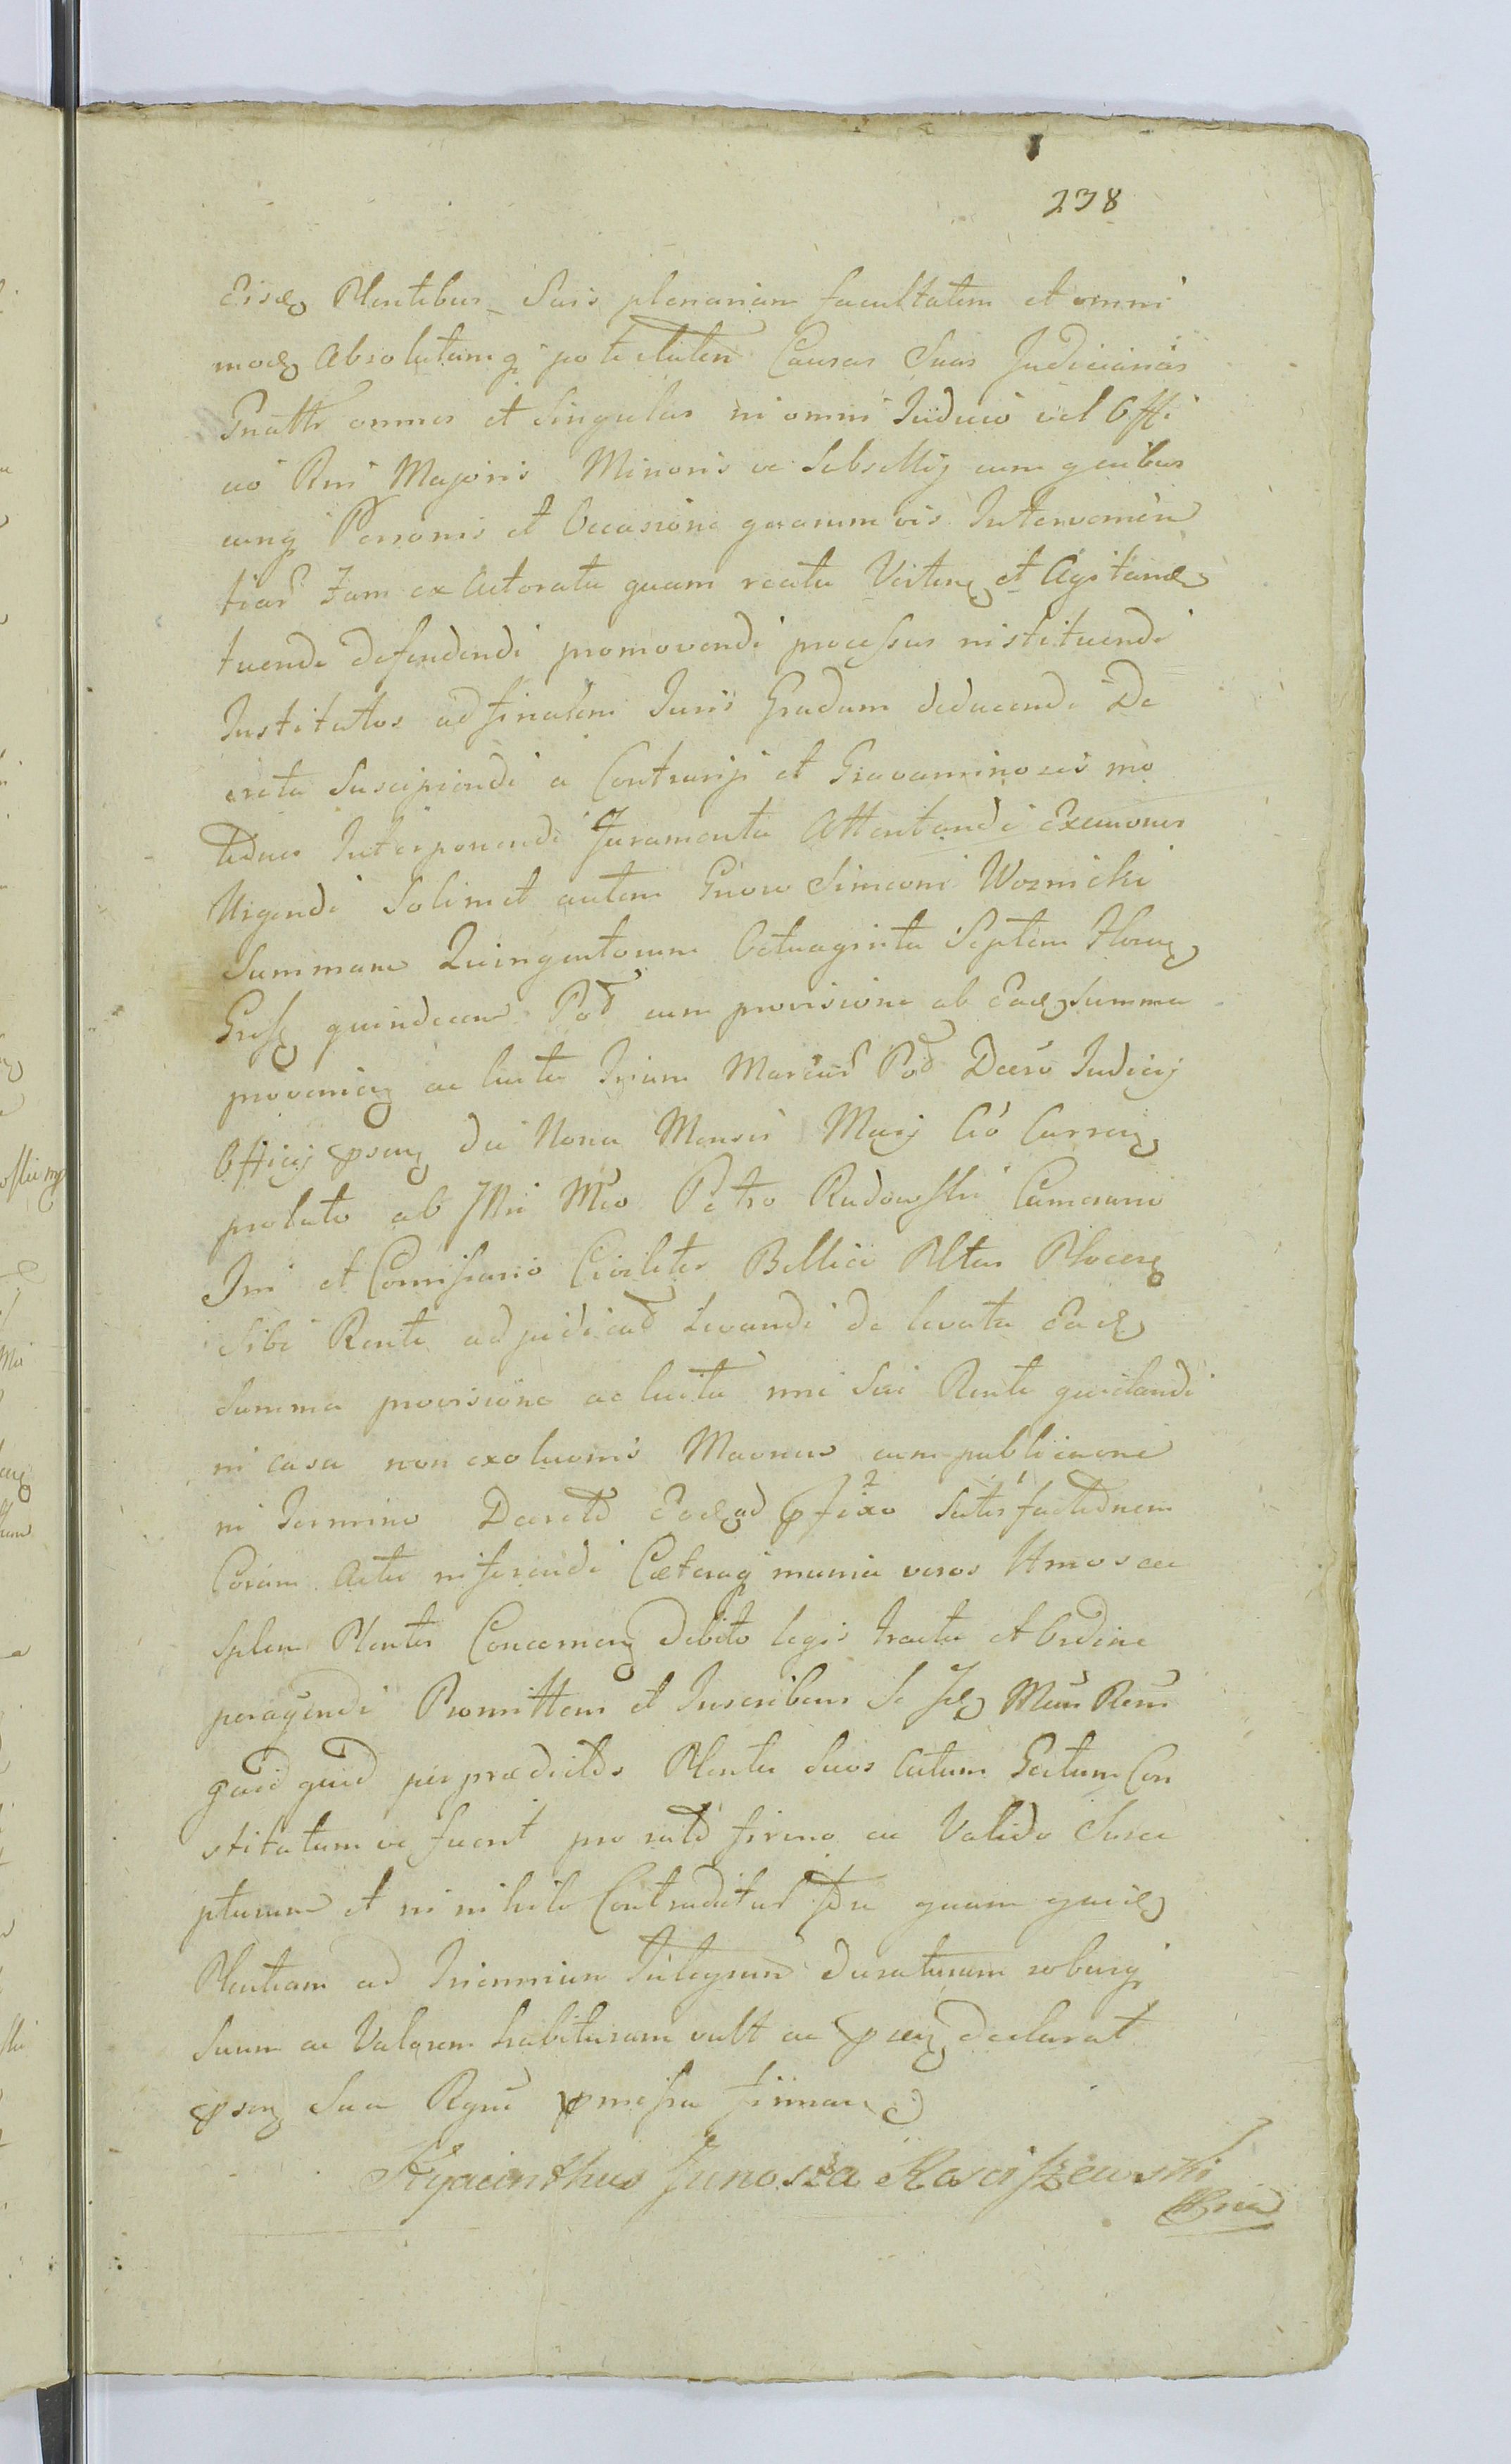 238
Eisdę Plentibus Suis plenariam facultatem et omni
modę Absolutamq potestatem Causas Suas Judiciarias
Gnaltr omnes et Singulas in omni Judicio vel Offi
cio Rni Majoris Minoris ve Subsellij cum quibus
cunq Personis et Occasione quarumvis Intervenien
tiar Tam ex Actoratu quam reatu Verten et Agitand
tuendi defendendi promovendi processus instituendi
Institutos ad finalem Juris Gradum deducendi De
creta Suscipiendi a Contrarijs et Gravaminosis mo
tiones Interponendi Juramenta Attentandi Exeunones
Urgendi Solimet autem Gnoso Simeoni Woznicki
Summam Quingentorum Octuaginta Septem Floreų
Gross quindecem Pol cum provisione ab Eadę Summa
provenieų ac luitu Trium Marcar Pol Decro Judicij
Officij psenų die Nona Mensis Maij Ao Curreų
prolato ab Mco Petro Rudowski Camerario
Tri et Comissario Civiliter Bellico Pltus Plocenę
Sibi Rente adjudicat Levandi de levata Eadę
Summa provisione ac luita nni Sui Rente quietandi
in casu non exolvonis Maonem cum publicaone
in Termino Decreto Eodę ad pfixo Satisfactionem
Coram Actis inferendi Caeteraq munia veros Ltmos ac
Splen Plentes Concerneų debito legis tractu et Ordine
peragendi Promittens et Inscribens Se Idę Mcus Rens
quid quid per praedictos Plentes Suos Actum Gestum Con
stitutum ve fuerit pro rato firmo ac Valido Susce
pturum et in nihilo Contradictur Fore quam quidę
Plentiam ad Triennium Integrum duraturam roburq
Suum ac Valorem habituram vult ac pseų declarat
pseų Sua Rgne pmissa firmaų
Hyacinthus Junosza Rosciszewski